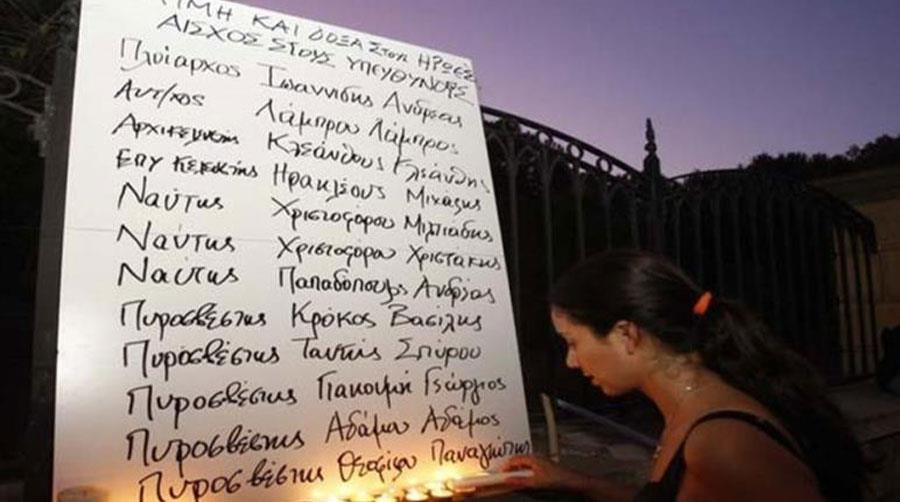 ΤΙΜΗ ΚΑΙ ΔΟΞΑ ΣΤΟΥΣ ΗΡΩΕΣ
ΑΙΣΧΟΣ ΣΤΟΥΣ ΥΠΕΥΘΥΝΟΥΣ
Πλοίαρχος Ιωαννίδης Ανδρέας
Αντ/χος Λάμπρου Λάμπρος
Αρχικελευστής Κλεάνθους Κλεάνθης
Επικελευστής Ηρακλέους Μιχάλης
Ναύτης Χριστοφόρου Μιλτιάδης
Ναύτης Χριστοφόρου Χριστάκης
Ναύτης Παπαδόπουλος Ανδρέας
Πυροσβέστης Κρόκος Βασίλης
Πυροσβέστης Ταντής Σπύρου
Πυροσβέστης Γιακουμή Γεώργιος
Πυροσβέστης Αδάμου Αδάμος
Πυροσβέστης Θεοφίλου Παναγιώτης